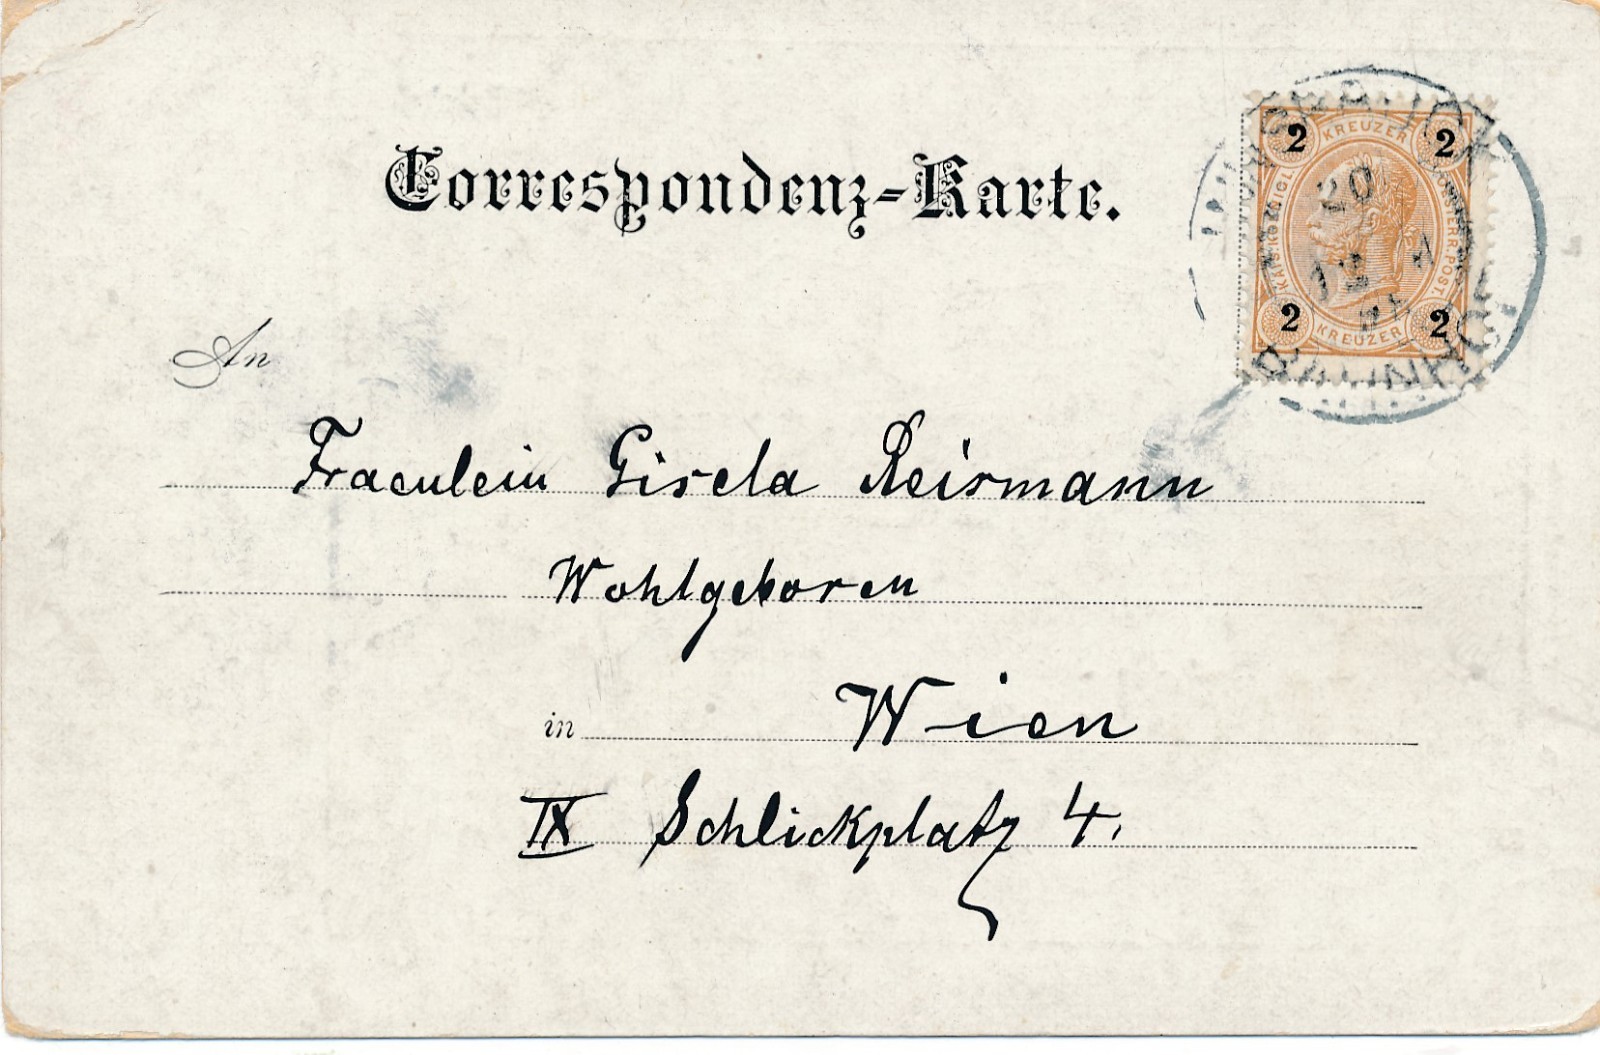 Correspondenz-Karte.
2 KREUZER 2
KAIS. KÖNIGL. ÖSTERR. POST.
20
12
2 KREUZER 2
An
Fraeulein Gisela Reismann
Wohlgeboren
in Wien
IX Schlickplatz 4.